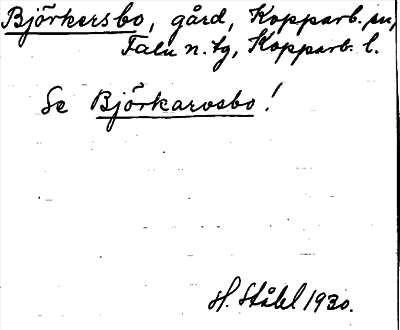 Björkersbo, gård, Kopparb. sn,
Falu n. tg, Kopparb. l.
Se Björkarvsbo!
H. Ståhl 1930.